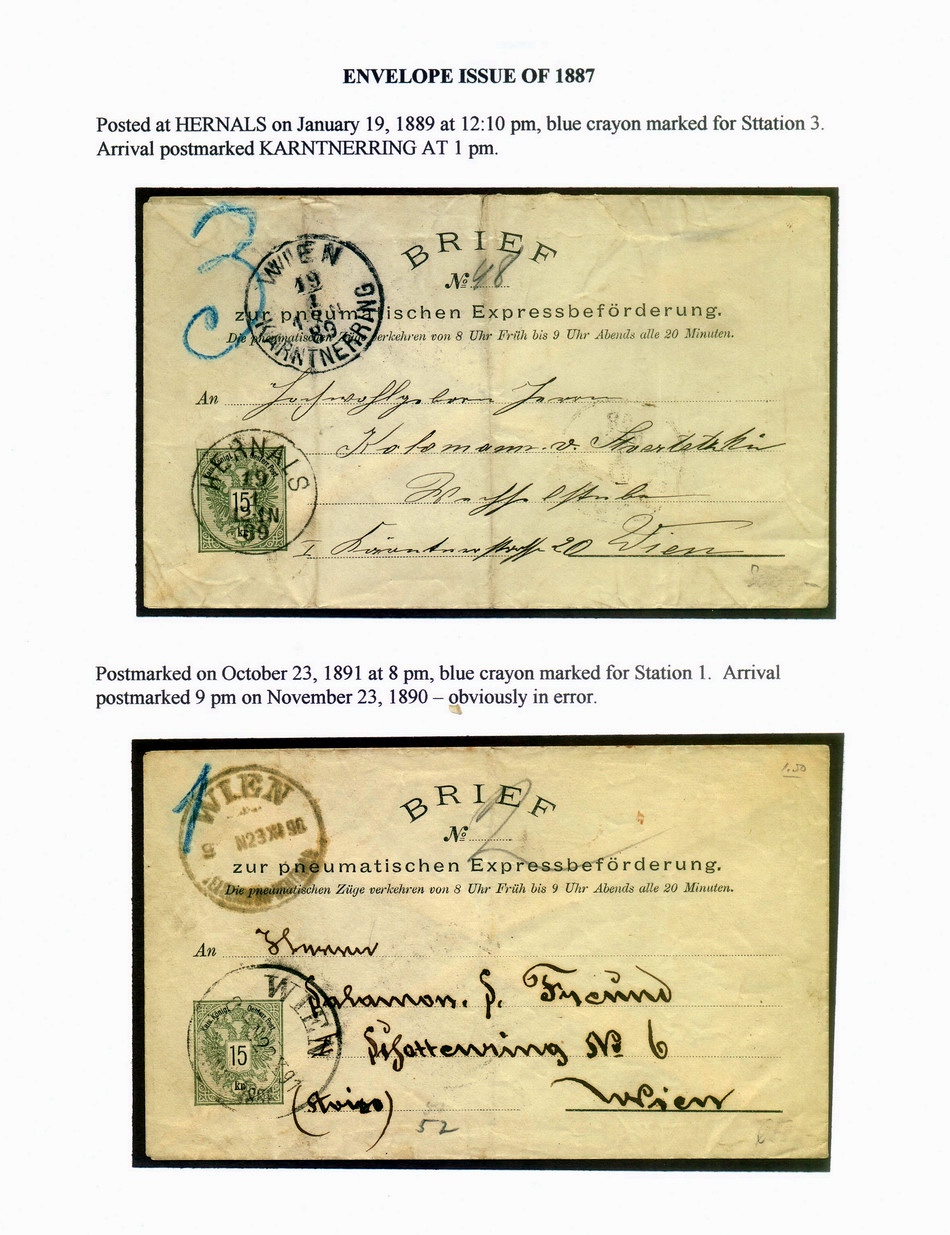 ENVELOPE ISSUE OF 1887
Posted at HERNALS on January 19, 1889 at 12:10 pm, blue crayon marked for Sttation 3.
Arrival postmarked KARNTNERRING AT 1 pm.
3
WIEN
19
1
1 N
89
KÄRNTNERRING
BRIEF
No. 48
zur pneumatischen Expressbeförderung.
Die pneumatischen Züge verkehren von 8 Uhr Früh bis 9 Uhr Abends alle 20 Minuten.
An Hochwohlgeboren Herrn
Kolomann v.
HERNALS
19
1
N
89
15
kr.
Wechselstube
I Kärntnerstrasse 20 Wien
Postmarked on October 23, 1891 at 8 pm, blue crayon marked for Station 1. Arrival
postmarked 9 pm on November 23, 1890 – obviously in error.
1
WIEN
1.50
BRIEF
No. 2
zur pneumatischen Expressbeförderung.
Die pneumatischen Züge verkehren von 8 Uhr Früh bis 9 Uhr Abends alle 20 Minuten.
An Herrn
Salamon. S. Freund
WIEN
15
kr.
Schottenring No 6
(Aviso) Wien
52